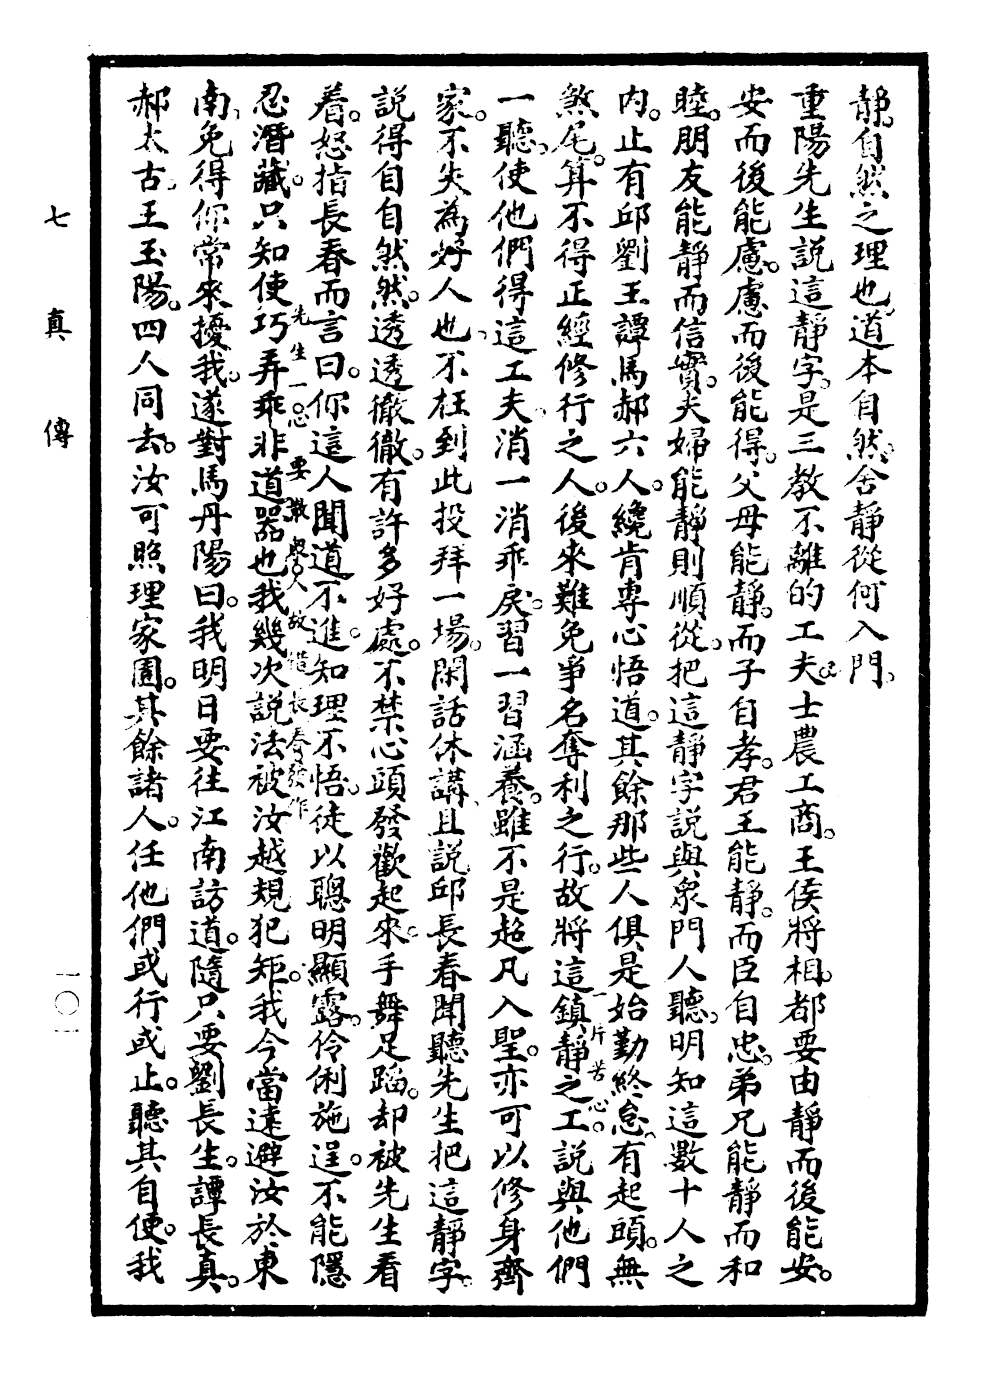 靜。自然之理也。道本自然。舍靜從何入門。
重陽先生説這靜字。是三教不離的工夫。士農工商。王侯將相。都要由靜而後能安。
安而後能慮。慮而後能得。父母能靜。而子自孝。君王能靜。而臣自忠。弟兄能靜而和
睦。朋友能靜而信實。夫婦能靜則順從。把這靜字説與衆門人聽。明知這數十人之
内。止有邱劉王譚馬郝六人。纔肯專心悟道。其餘那些人俱是始勤終怠。有起頭。無
煞尾。算不得正經修行之人。後來難免爭名奪利之行。故將這鎮靜之工。説與他們
一片苦心。
一聽。使他們得這工夫。消一消乖戾。習一習涵養。雖不是超凡入聖。亦可以修身齊
家。不失為好人也。不枉到此投拜一場。閑話休講。且説邱長春聞聽先生把這靜字。
説得自自然然。透透徹徹。有許多好處。不禁心頭發歡起來。手舞足蹈。却被先生看
着。怒指長春而言曰。你這人聞道不進。知理不悟。徒以聰明顯露。伶俐施逞。不能隱
先生一怒要散衆人故借長春發作
忍潛藏。只知使巧弄乖非道器也我幾次説法被汝越規犯矩。我今當遠避汝於東
南。免得你常來擾我。遂對馬丹陽曰。我明日要往江南訪道。隨只要劉長生。譚長真。
郝太古。王玉陽。四人同去。汝可照理家園。其餘諸人。任他們或行或止。聽其自便。我
七真傳
一〇一